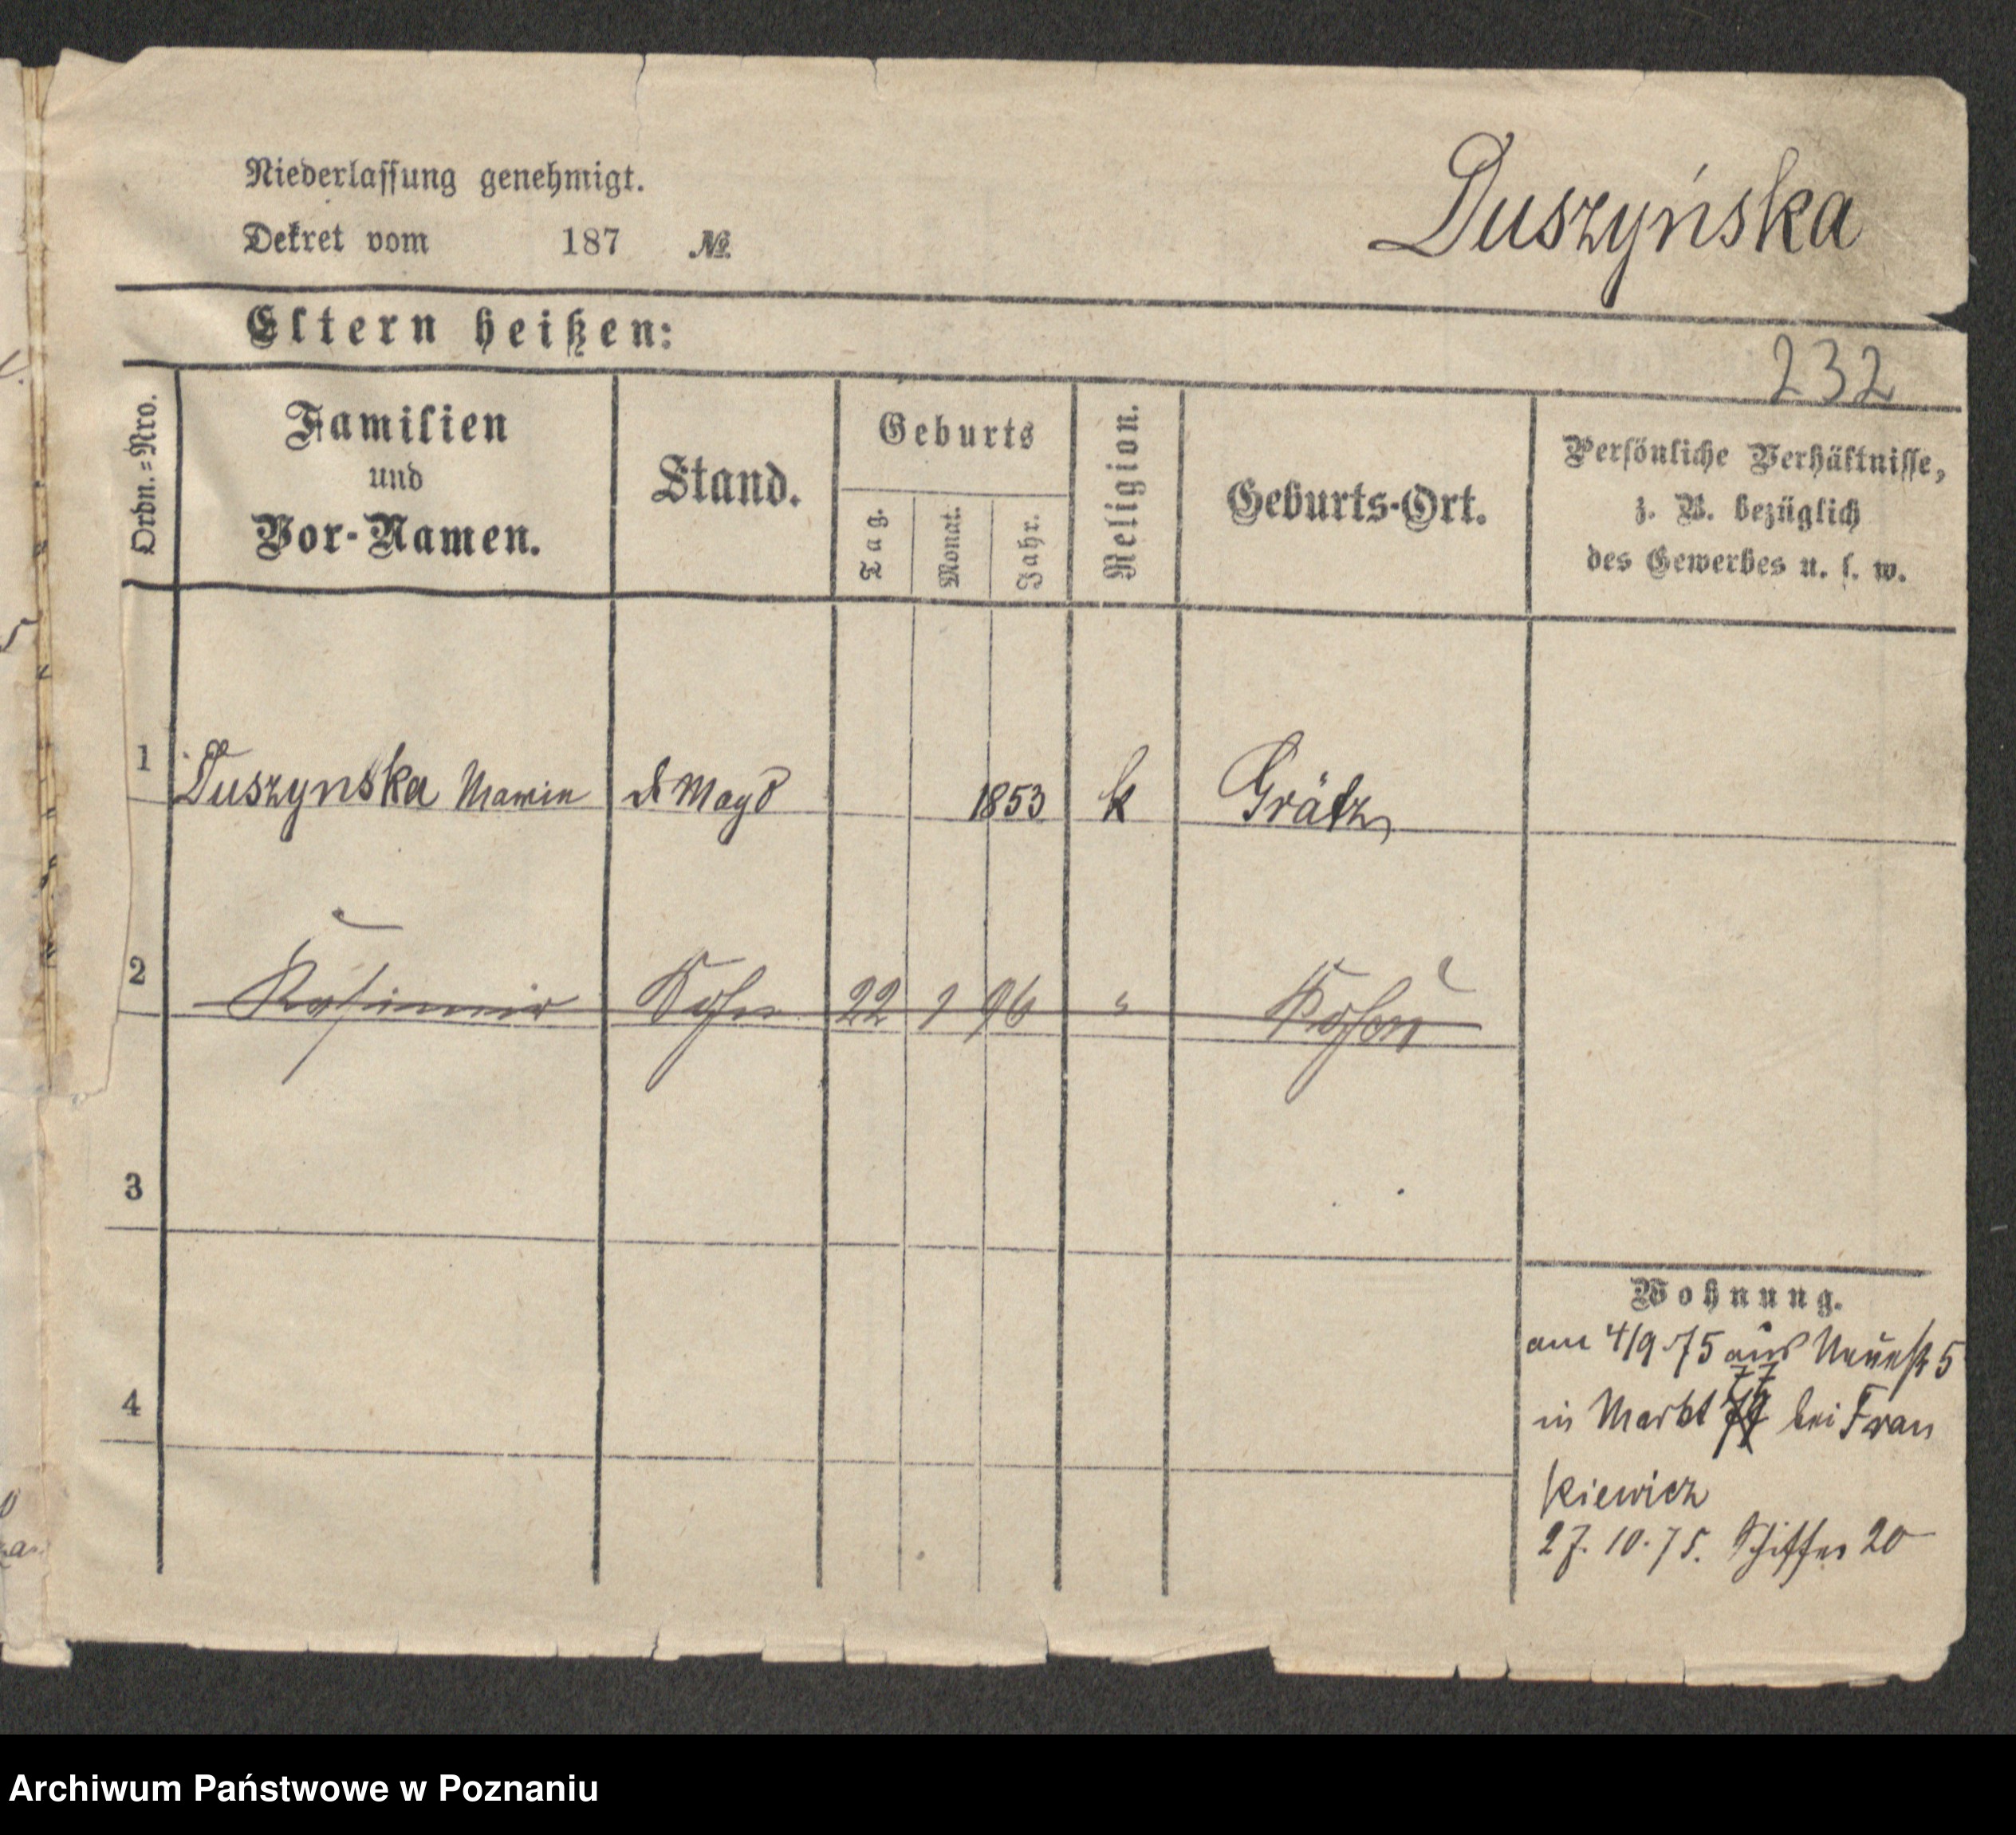 Niederlassung genehmigt.
Dekret vom 187 №
Duszyńska
Eltern heißen:
232
Ordn.=Nro.
Familien
und
Vor-Namen.
Stand.
Geburts
Tag.
Monat.
Jahr.
Religion.
Geburts-Ort.
Persönliche Verhältnisse,
z. B. bezüglich
des Gewerbes u. s. w.
1 Duszynska Marie d Magd 1853 k Grätz
2 Kasimir Sohn 22 1 96 " Posen
3
4
Wohnung.
am 4/9 75 aus Neuestr 5
in Markt 77 bei Fran
kiewicz
27. 10. 75. Schiffer 20
Archiwum Państwowe w Poznaniu